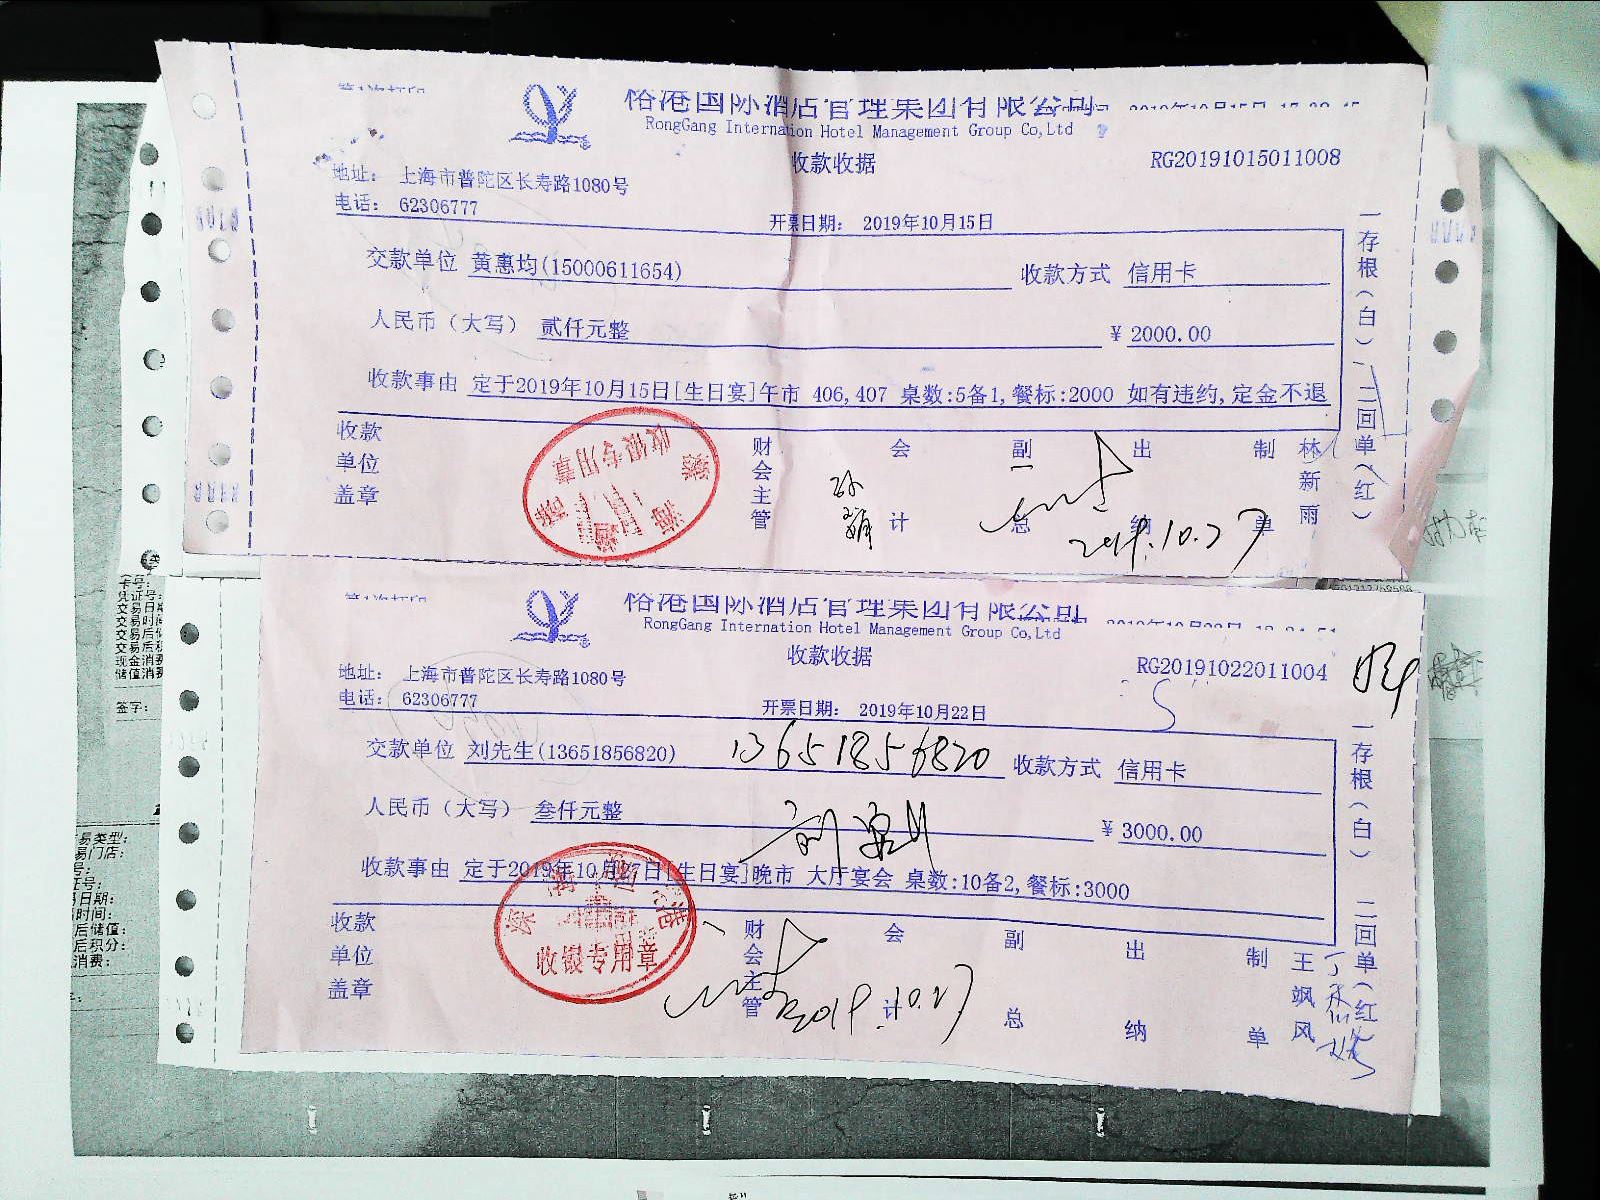 裕港国际酒店管理集团有限公司
RongGang Internation Hotel Management Group Co,Ltd
收款收据
RG20191015011008
地址： 上海市普陀区长寿路1080号
电话： 62306777
开票日期： 2019年10月15日
交款单位 黄惠均(15000611654) 收款方式 信用卡
人民币（大写） 贰仟元整 ¥ 2000.00
收款事由 定于2019年10月15日[生日宴]午市 406,407 桌数:5备1,餐标:2000 如有违约,定金不退
收款单位盖章 财会主管 会计 副总 出纳 制单 林新雨
一存根（白） 二回单（红）
收银专用章
2019.10.27
裕港国际酒店管理集团有限公司
RongGang Internation Hotel Management Group Co,Ltd
收款收据
RG20191022011004
地址： 上海市普陀区长寿路1080号
电话： 62306777
开票日期： 2019年10月22日
交款单位 刘先生(13651856820) 13651856820 收款方式 信用卡
人民币（大写） 叁仟元整 ¥ 3000.00
收款事由 定于2019年10月27日[生日宴]晚市 大厅宴会 桌数:10备2,餐标:3000
收款单位盖章 财会主管 会计 副总 出纳 制单 王飒风
一存根（白） 二回单（红）
收银专用章
2019.10.27
卡号:
凭证号:
现金消费
储值消费
签字:
易类型:
易门店:
后储值:
后积分:
消费: